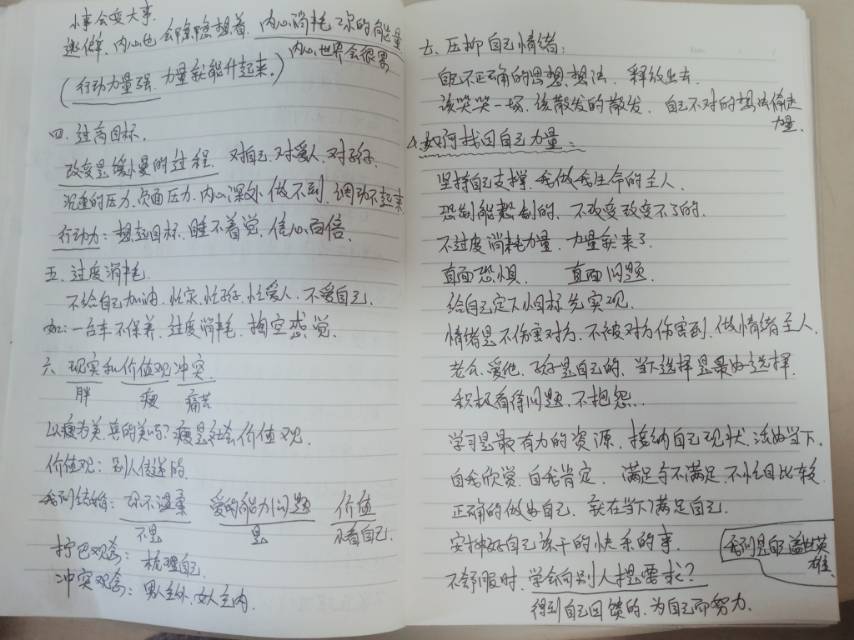 小事会变大事.
逃体. 内心也会隐隐想着. 内心消耗了你的能量
内心世界会很累
(行动力量强. 力量就能升起来.)
四. 过高目标.
改变是缓慢的过程. 对自己. 对爱人. 对孩子.
沉重的压力. 负面压力. 内心深处 做不到. 调动不起来
行动力: 想起目标. 睡不着觉. 信心百倍.
五. 过度消耗.
不给自己加油. 忙家. 忙孩子. 忙爱人. 不爱自己.
如: 一台车不保养. 过度消耗. 掏空感觉.
六. 现实和价值观冲突.
胖 瘦 痛苦
以瘦为美. 真的美吗? 瘦是社会价值观.
价值观: 别人传递的.
看到结婚: 现不温柔 爱的能力问题 价值
不是 是
拧巴观念: 梳理自己.
冲突观念: 男主外. 女主内.
七. 压抑自己情绪:
自己不正确的思想. 想法. 释放出去.
该哭哭一场. 该散发的散发. 自己不对的想法偷走
力量.
如何找回自己力量:
坚持自己支撑. 我做我生命的主人.
控制能控制的. 不改变改变不了的.
不过度消耗力量. 力量就来了.
直面恐惧. 直面问题.
给自己定下小目标先实现.
情绪是不伤害对方. 不被对方伤害到. 做情绪主人.
老公. 爱他. 孩子是自己的. 当下选择是最好选择.
积极看待问题. 不抱怨..
学习是最有力的资源. 接纳自己现状. 活好当下.
自我欣赏. 自我肯定. 满足与不满足. 不比较
正确的做好自己. 就在当下满足自己.
安排好自己该干的快乐的事.
看到是自己盖世英
雄.
不舒服时. 学会向别人提要求?
得到自己回馈的. 为自己而努力.